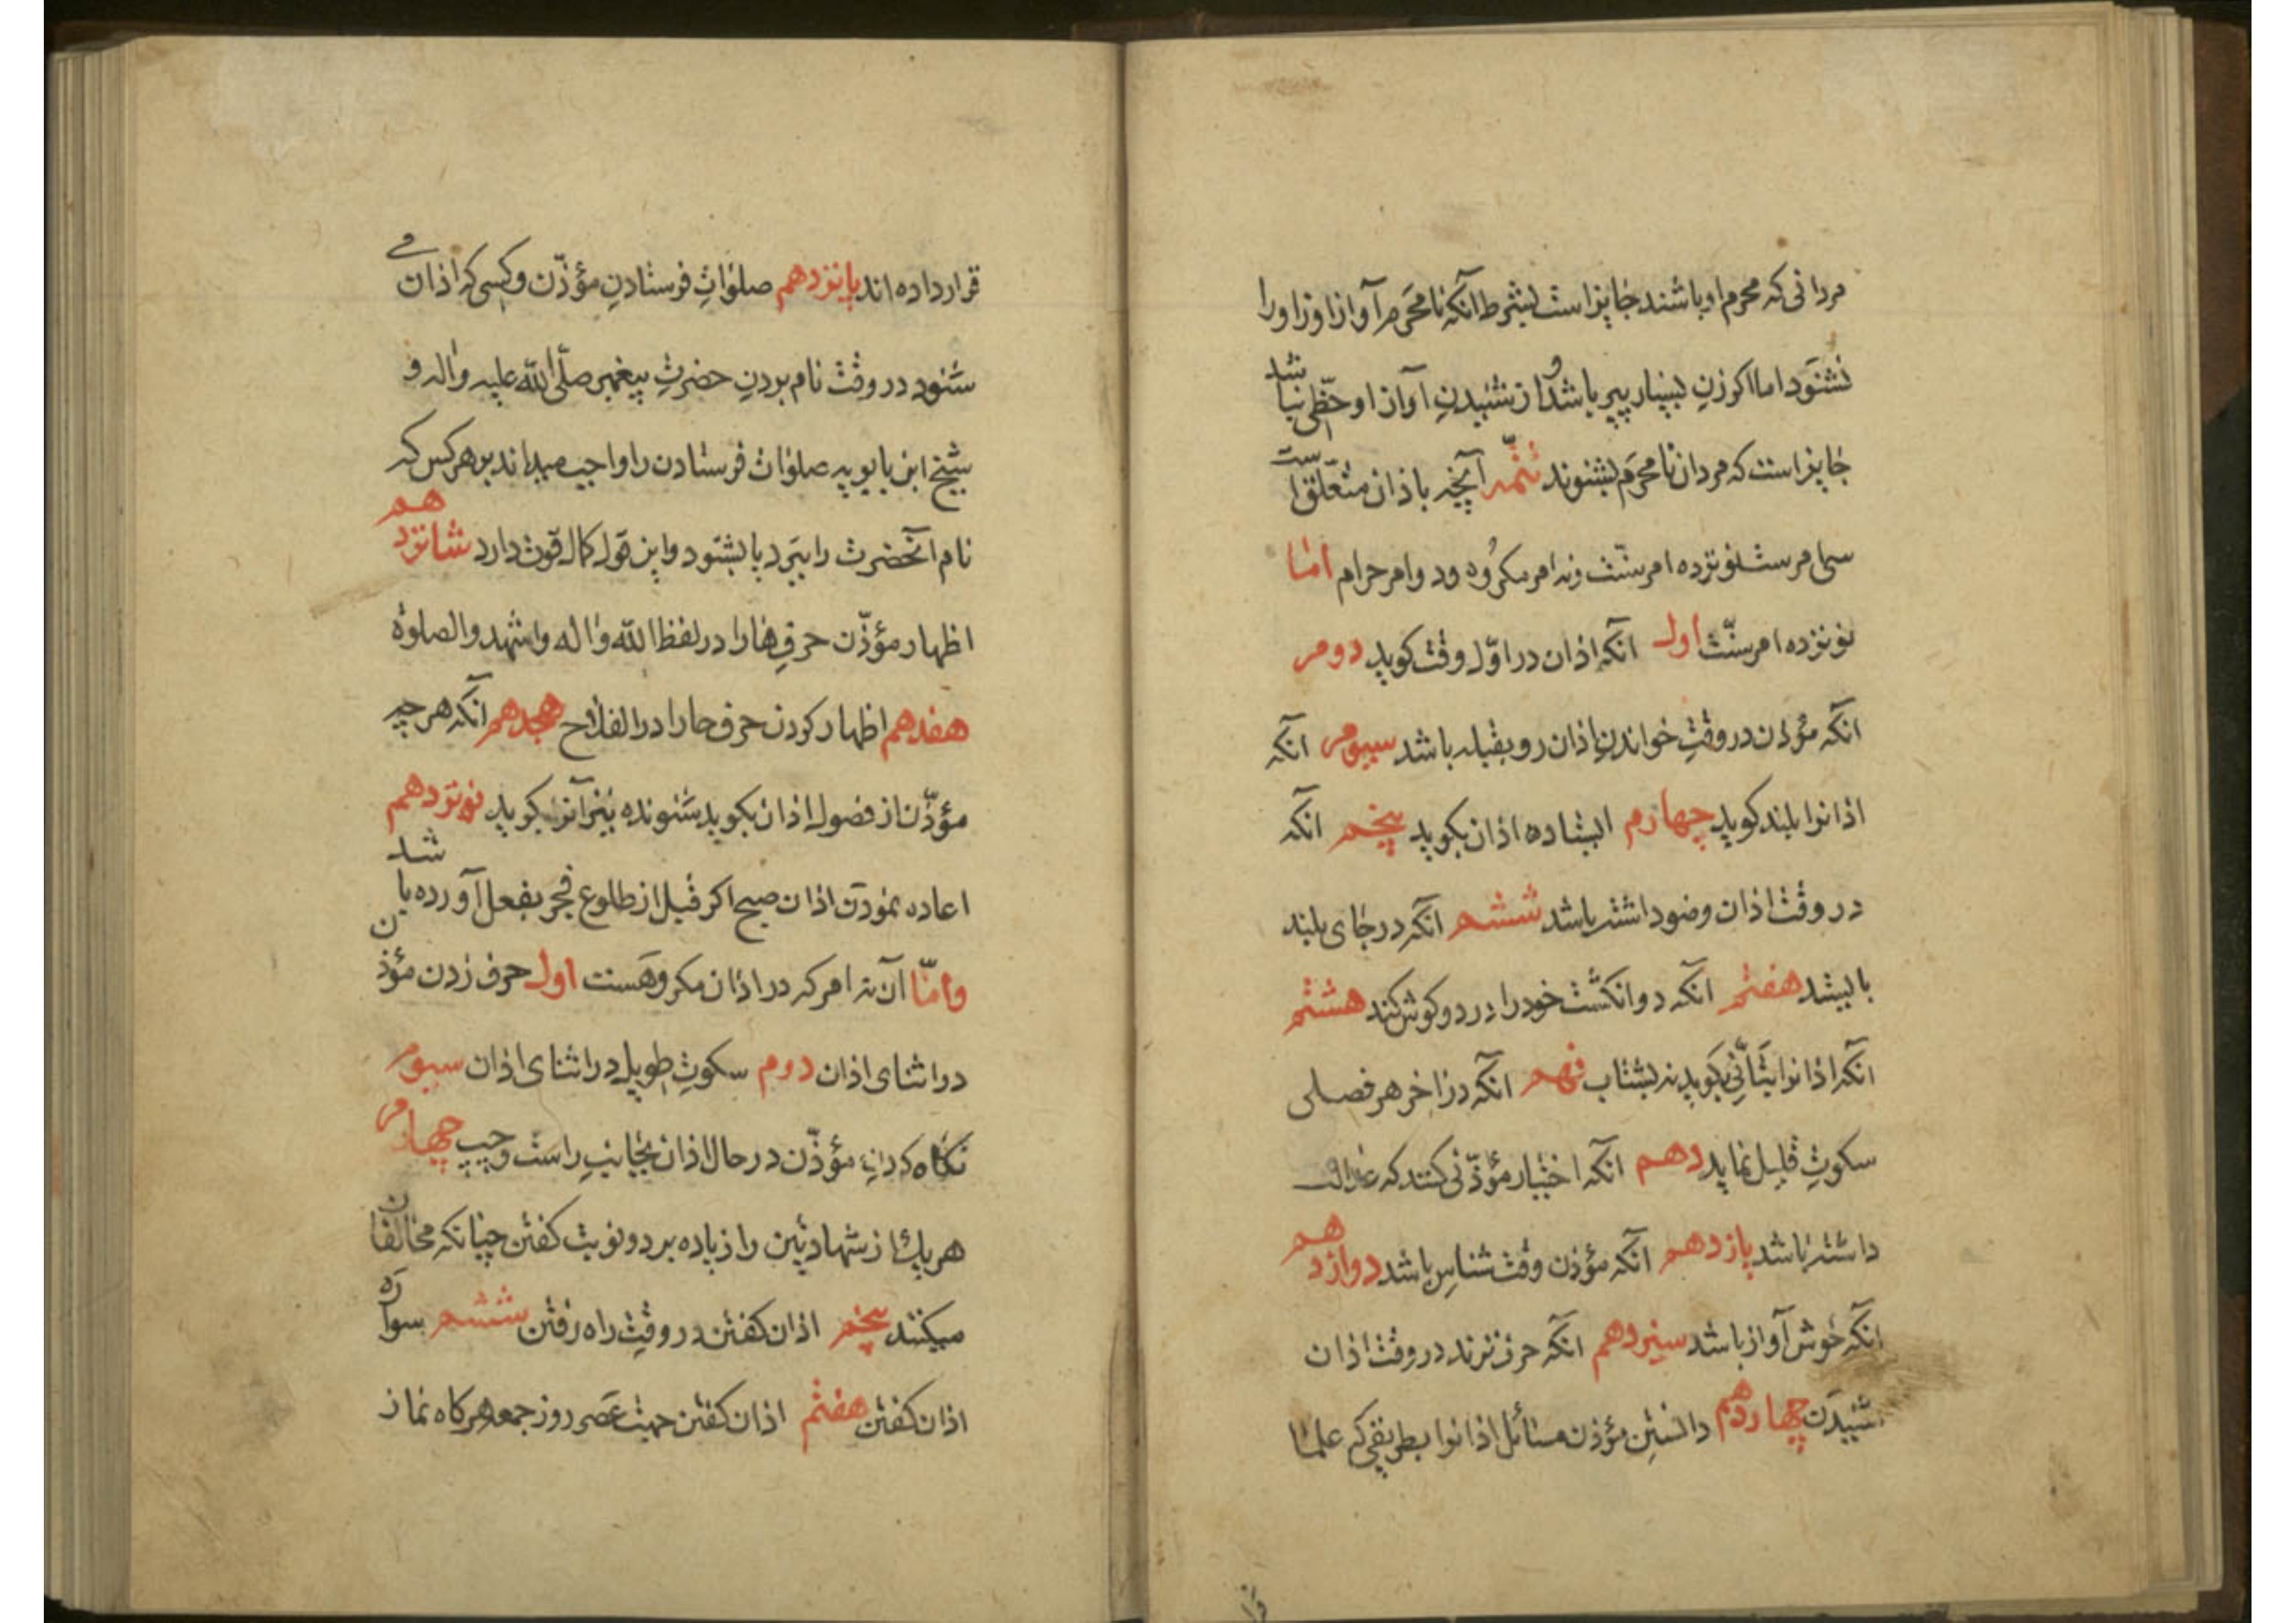 مردانی که محرم او باشند جایز است بشرط آنکه نامحرم آواز او را
نشنود اما اکر زن بسیار پیر باشد و از شنیدن آواز او حظّی نباشد
جایز است که مردان نامحرم بشنوند تتمّه آنچه باذان متعلّق است
سی امرست نوزده امر سنّت و نه امر مکروه و دو امر حرام امّا
نوزده امر سنّت اول آنکه اذان در اوّل وقت کوید دوم
آنکه مؤذن در وقتِ خواندنِ اذان رو بقبله باشد سیوم آنکه
اذانرا بلند کوید چهارم ایستاده اذان بکوید پنجم آنکه
در وقت اذان وضو داشته باشد ششم آنکه در جای بلند
بایستد هفتم آنکه دو انکشت خود را در دو کوش کند هشتم
آنکه اذانرا بتأنّی بکوید نه بشتاب نهم آنکه در آخر هر فصلی
سکوتِ قلیل نماید دهم آنکه اختیار مؤذّنی کنند که عدالت
داشته باشد یازدهم آنکه مؤذن وقت شناس باشد دوازدهم
آنکه خوش آواز باشد سیزدهم آنکه حرف نزند در وقت اذان
شنیدن چهاردهم دانستنِ مؤذن مسائل اذانرا بطریقی که علما
قرار
قرار داده اند پانزدهم صلوٰاتِ فرستادنِ مؤذّن و کسی که اذان می
شنود در وقت نام بردنِ حضرتِ پیغمبر صلّی الله علیه واٰله و
شیخ ابن بابویه صلوٰات فرستادن را واجب میداند بر هر کس که
نام آنحضرت را ببرد یا بشنود و این قول کمال قوت دارد شانزدهم
اظهار مؤذّن حرفِ هارا در لفظ الله واله واشهد والصلوٰة
هفدهم اظهار کردن حرف حارا در الفلاح هجدهم آنکه هر چه
مؤذّن از فصول اذان بکوید شنونده نیز آنرا بکوید نوزدهم
اعاده نمودن اذان صبح اکر قبل از طلوع فجر بفعل آورده باشد
وامّا آن نه امر که در اذان مکروهست اول حرف زدن مؤذن
در اثنای اذان دوم سکوتِ طویل در اثنای اذان سیوم
نکاه کردنِ مؤذّن در حال اذان بجانبِ راست و چپ چهارم
هر یک از شهادتین را زیاده بر دو نوبت کفتن چنانکه مخالفان
میکنند پنجم اذان کفتن در وقتِ راه رفتن ششم سواره
اذان کفتن هفتم اذان کفتن جهت عصر روز جمعه هرکاه نماز